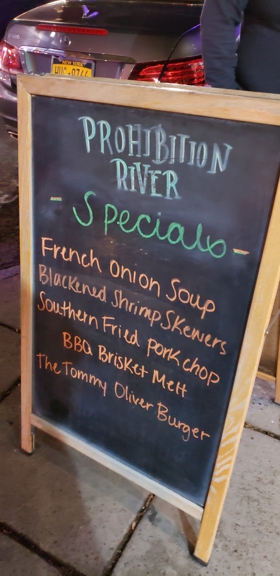 PROHIBITION
RIVER
- Specials -
French Onion Soup
Blackened Shrimp Skewers
Southern Fried Pork chop
BBQ Brisket Melt
The Tommy Oliver Burger